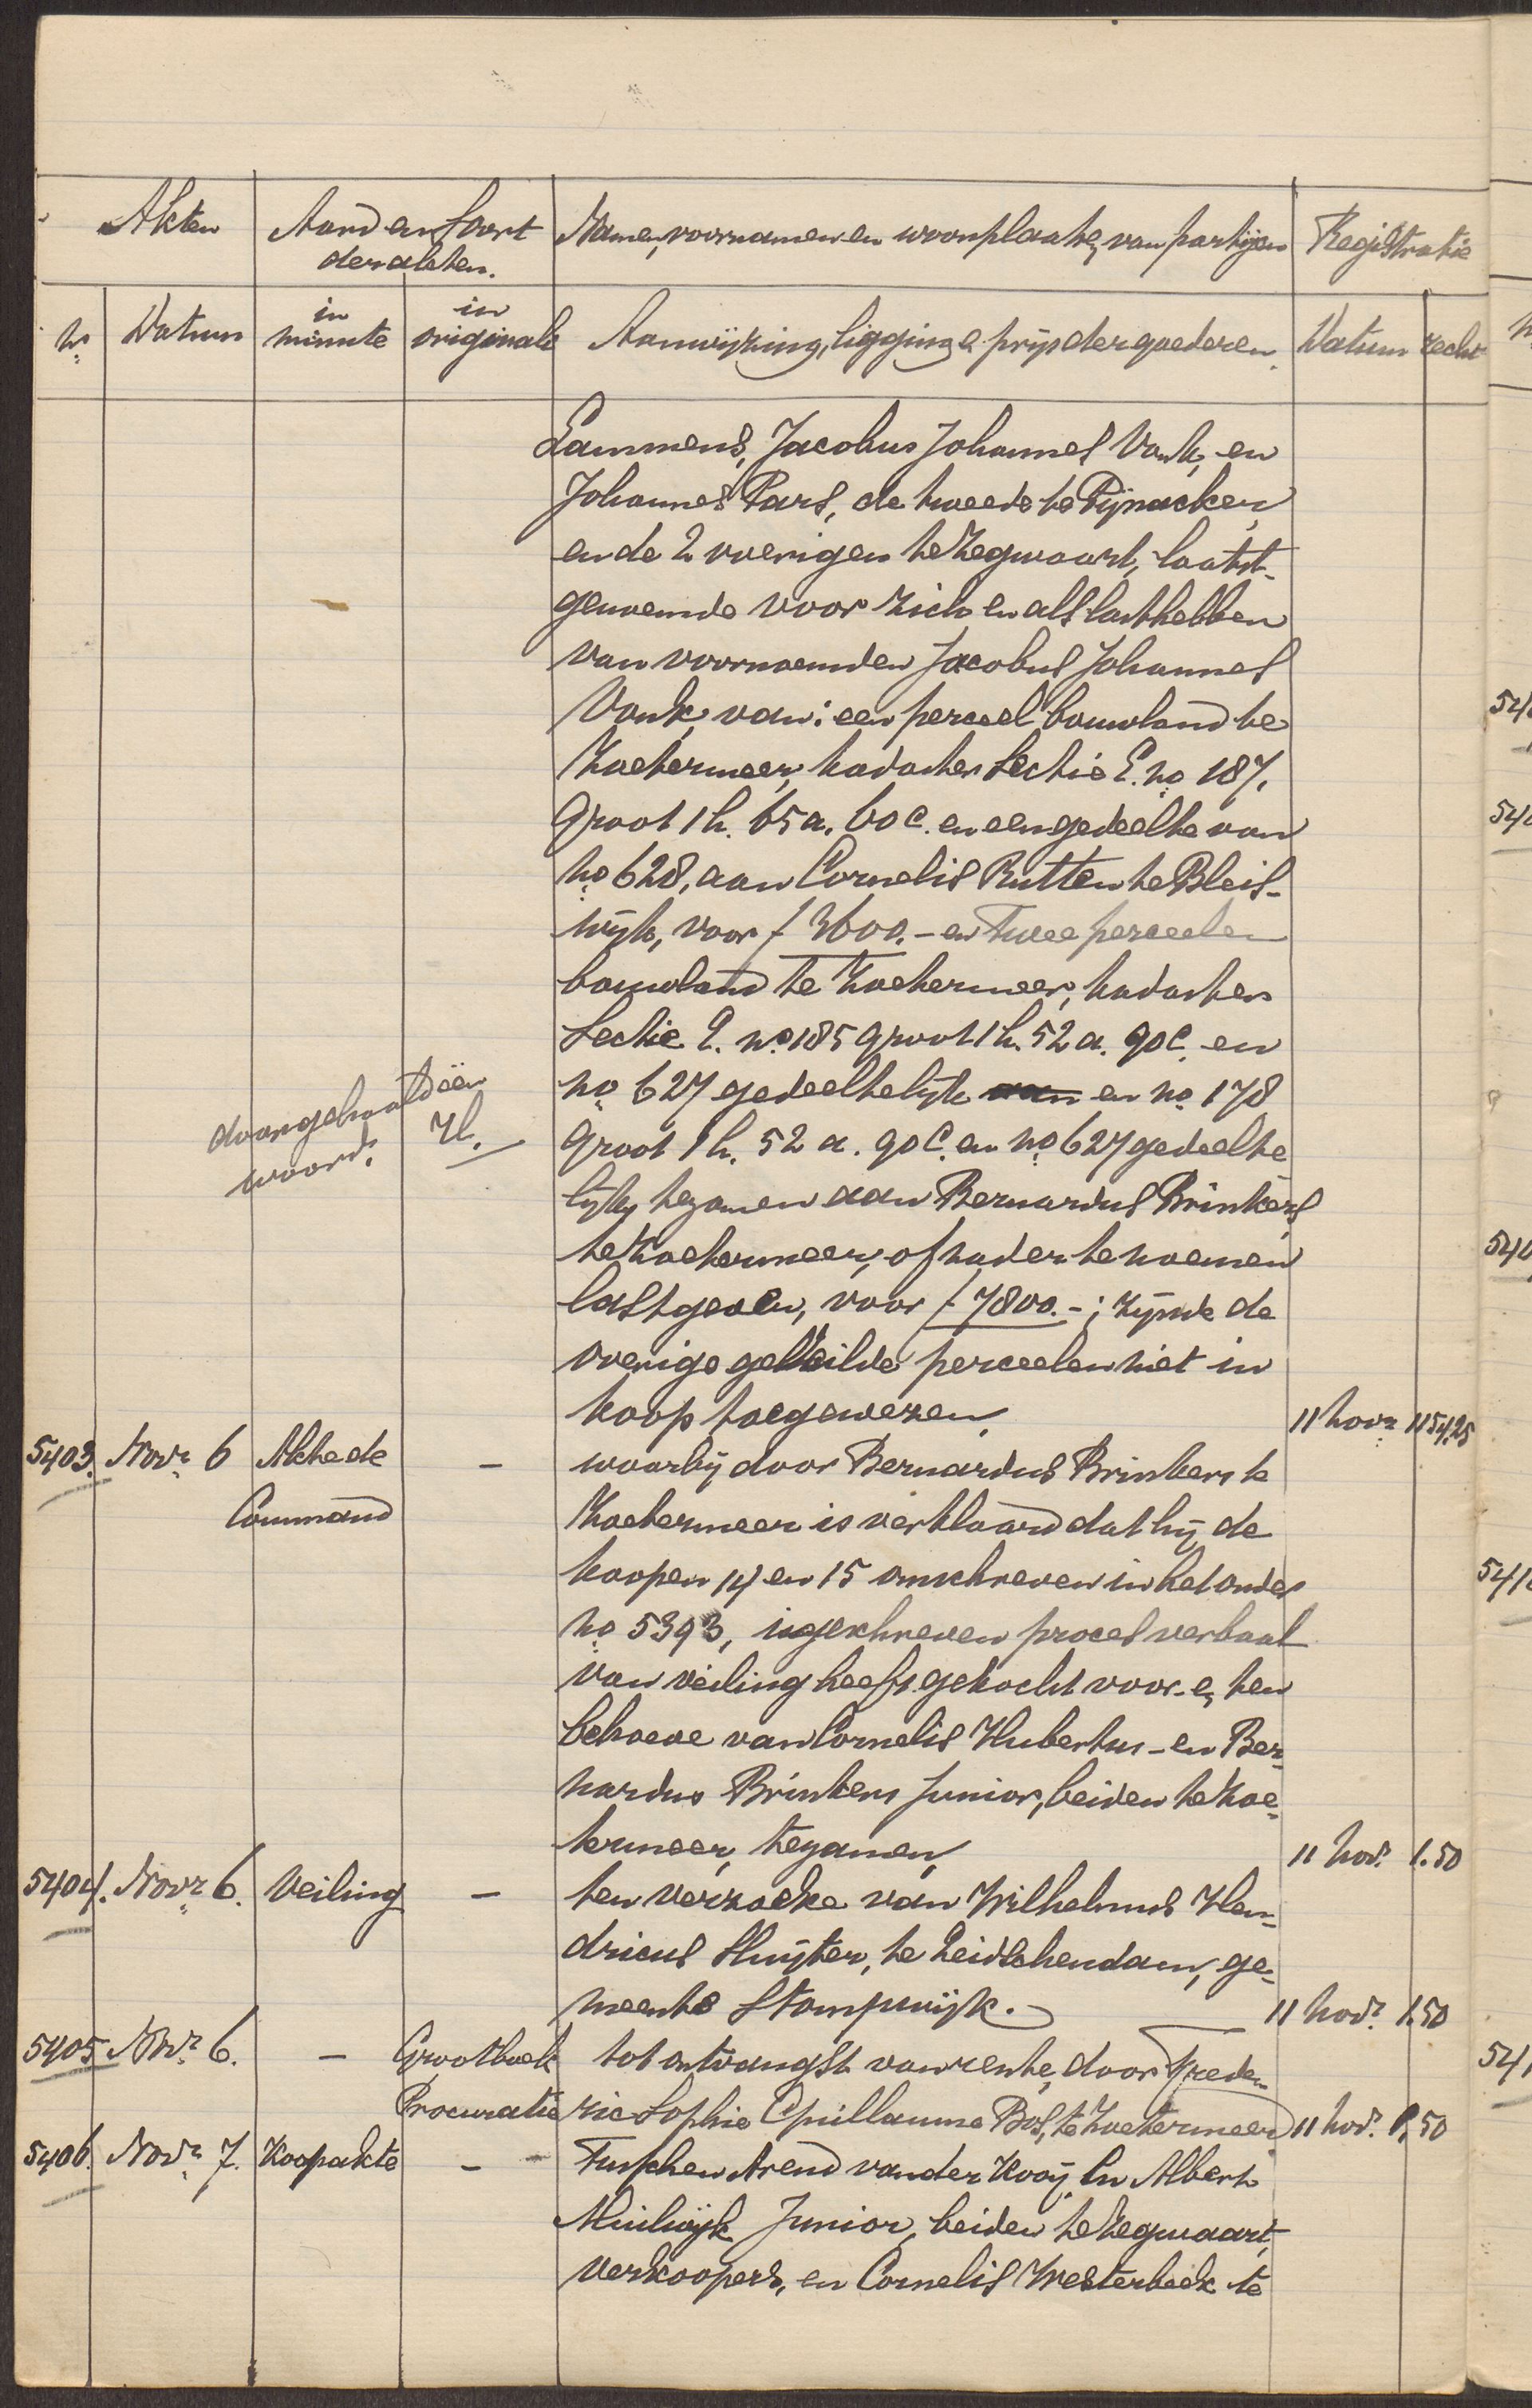 Akten
Aard en Soort
der akten.
Namen, voornamen en woonplaats van partijen
Registratie
No
Datum
in
minute
in
originale
Aanwijzing, ligging & prijs der goederen.
Datum
recht
Lammens, Jacobus Johannes Vonk, en
Johannes Pars, de tweede te Pijnacker,
en de 2 overigen te Zegwaart, laatst-
genoemde voor zich en als lasthebber
van voornoemden Jacobus Johannes
Vonk, van: een perceel bouwland te
Zoetermeer, kadaster Sectie E. no 187,
groot 1 h. 65 a. 60 c. en een gedeelte van
no 628, aan Cornelis Rutten te Bleis-
wijk, voor f 3600.- en Twee perceelen
bouwland te Zoetermeer, kadaster
Sectie E. no 185 groot 1 h. 52 a. 90 c. en
no 627 gedeeltelijk van en no 178
doorgehaald één
woord.
groot 1 h. 52 a. 90 c. en no 627 gedeelte
lijk, tezamen aan Bernardus Brinkers
te Zoetermeer, of nader te noemen
lastgever, voor f 7800.-; zijnde de
overige geveilde perceelen niet in
koop toegewezen,
11 Novr 1154.25
5403. Novr 6 Akte de
Command
-
waarbij door Bernardus Brinkers te
Zoetermeer is verklaard dat hij de
koopen 14 en 15 omschreven in het onder
no 5393, ingeschreven proces verbaal
van veiling heeft gekocht voor & ten
behoeve van Cornelis Hubertus - en Ber-
nardus Brinkers Junior, beiden te Zoe-
termeer, tezamen,
11 Novr 1.50
5404. Novr 6. Veiling -
ten verzoeke van Wilhelmus Hen-
dricus Sluijter, te Leidschendam, ge-
meente Stompwijk.
11 Novr 1.50
5405 Novr 6. - Grootboek
Procuratie
tot ontvangst van rente, door Frede-
ric Sophie Guillaume Bos, te Zoetermeer
11 Novr 1.50
5406. Novr 7. Koopakte -
Tusschen Arend van der Kooij en Albert
Muilwijk Junior, beiden te Zegwaart,
verkoopers, en Cornelis Westerbeek te